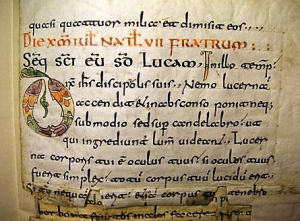 quasi quattuor milia et dimisit eos
DIE X IUL NAT VII FRATRUM
Seq sci eu sd Lucam In illo temp
ihs discipulis suis Nemo lucernā
accendit et in absconso ponit neq
sub modio sed sup candelabrū ut
qui ingrediunt lum videant Lucer
na corporis tui ē oculus tuus Si oculus tuus
fuerit simplex totū corpus tuū lucidū erit
Si
erit etiā corpus tuū tenebro